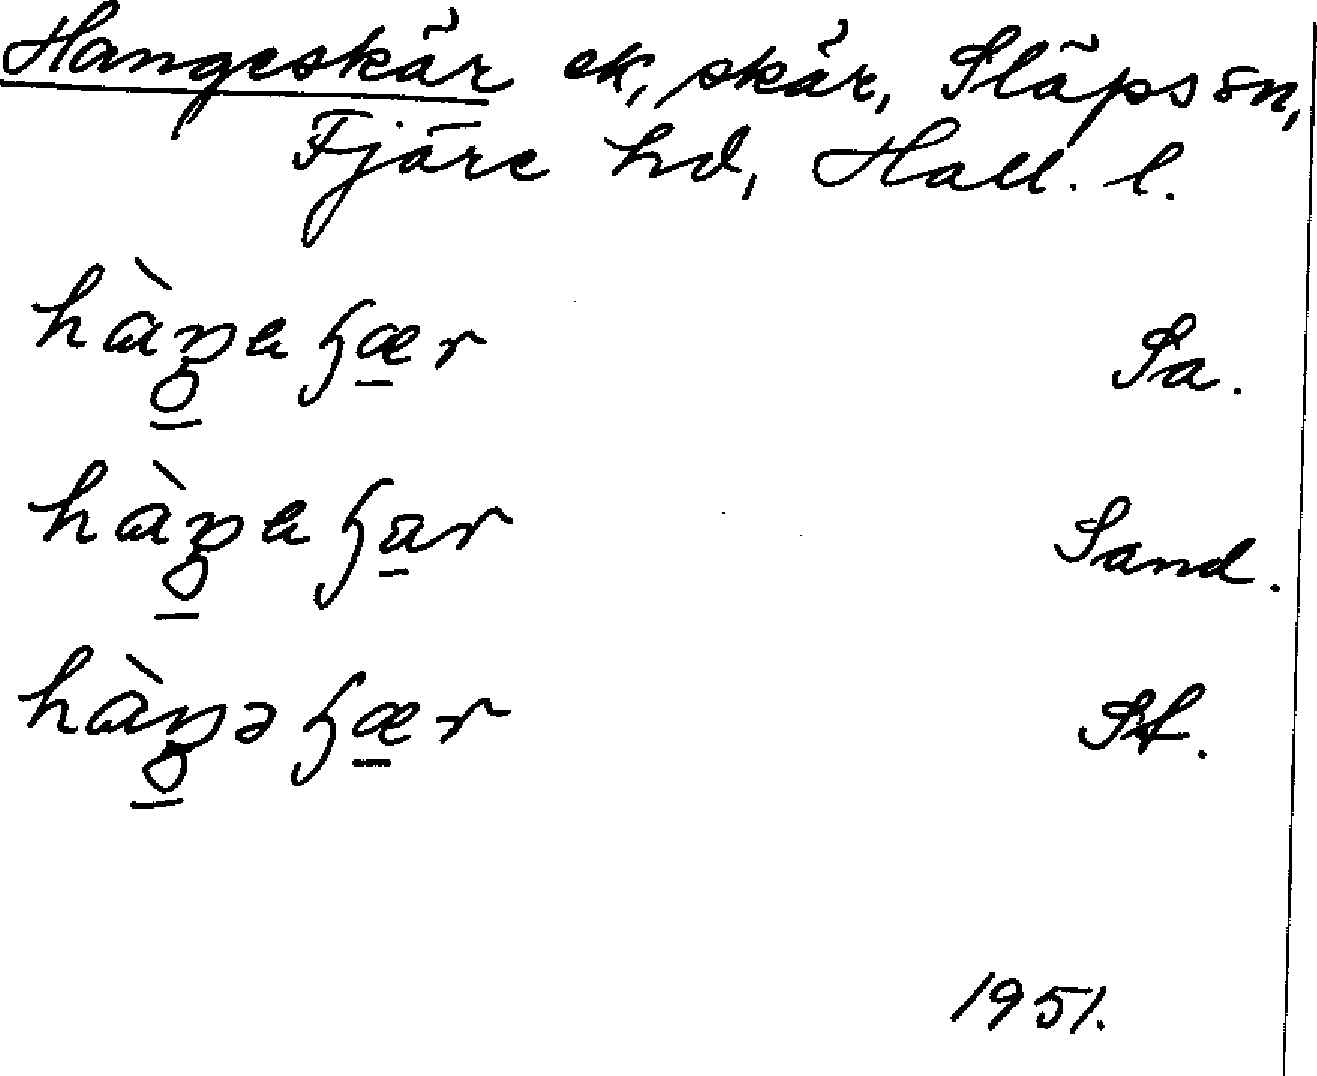 Hangeskär ek, skär, Släps sn,
Fjäre hd, Hall. l.
hàŋaʂær Sa.
hàŋaʂar Sand.
hàŋəʂær St.
1951.